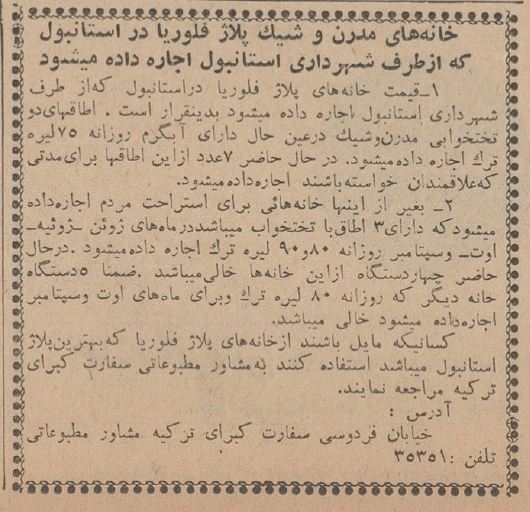 خانه‌های مدرن و شیك پلاژ فلوریا در استانبول
که ازطرف شهرداری استانبول اجاره داده میشود
۱ـ قیمت خانه‌های پلاژ فلوریا دراستانبول که‌از طرف
شهرداری استانبول اجاره داده میشود بدینقرار است . اطاقهای‌دو
تختخوابی مدرن‌وشیك درعین حال دارای آبگرم روزانه ۷۵لیره
ترك اجاره داده‌میشود. در حال حاضر ۷عدد ازاین اطاقها برای‌مدتی
که‌علاقمندان خواسته‌باشند اجاره‌داده‌میشود.
۲ـ بعیر از اینها خانه‌هائی برای استراحت مردم اجاره‌داده
میشودکه دارای۳ اطاق‌با تختخواب میباشددرماه‌های ژوئن ـژوئیه‌ـ
اوت‌ـ وسپتامبر روزانه ۸۰و۹۰ لیره ترك اجاره داده‌میشود .درحال
حاضر چهاردستگاه ازاین خانه‌ها خالی‌میباشد .ضمنا ۵دستگاه
خانه دیگر که روزانه ۸۰ لیره ترك وبرای ماه‌های اوت وسپتامبر
اجاره‌داده میشود خالی میباشد.
کسانیکه مایل باشند ازخانه‌های پلاژ فلوریا که‌بهترین‌پلاژ
استانبول میباشد استفاده کنند به‌مشاور مطبوعاتی سفارت کبرای
ترکیه مراجعه نمایند.
آدرس :
خیابان فردوسی سفارت کبرای ترکیه مشاور مطبوعاتی
تلفن :۳۵۳۵۱